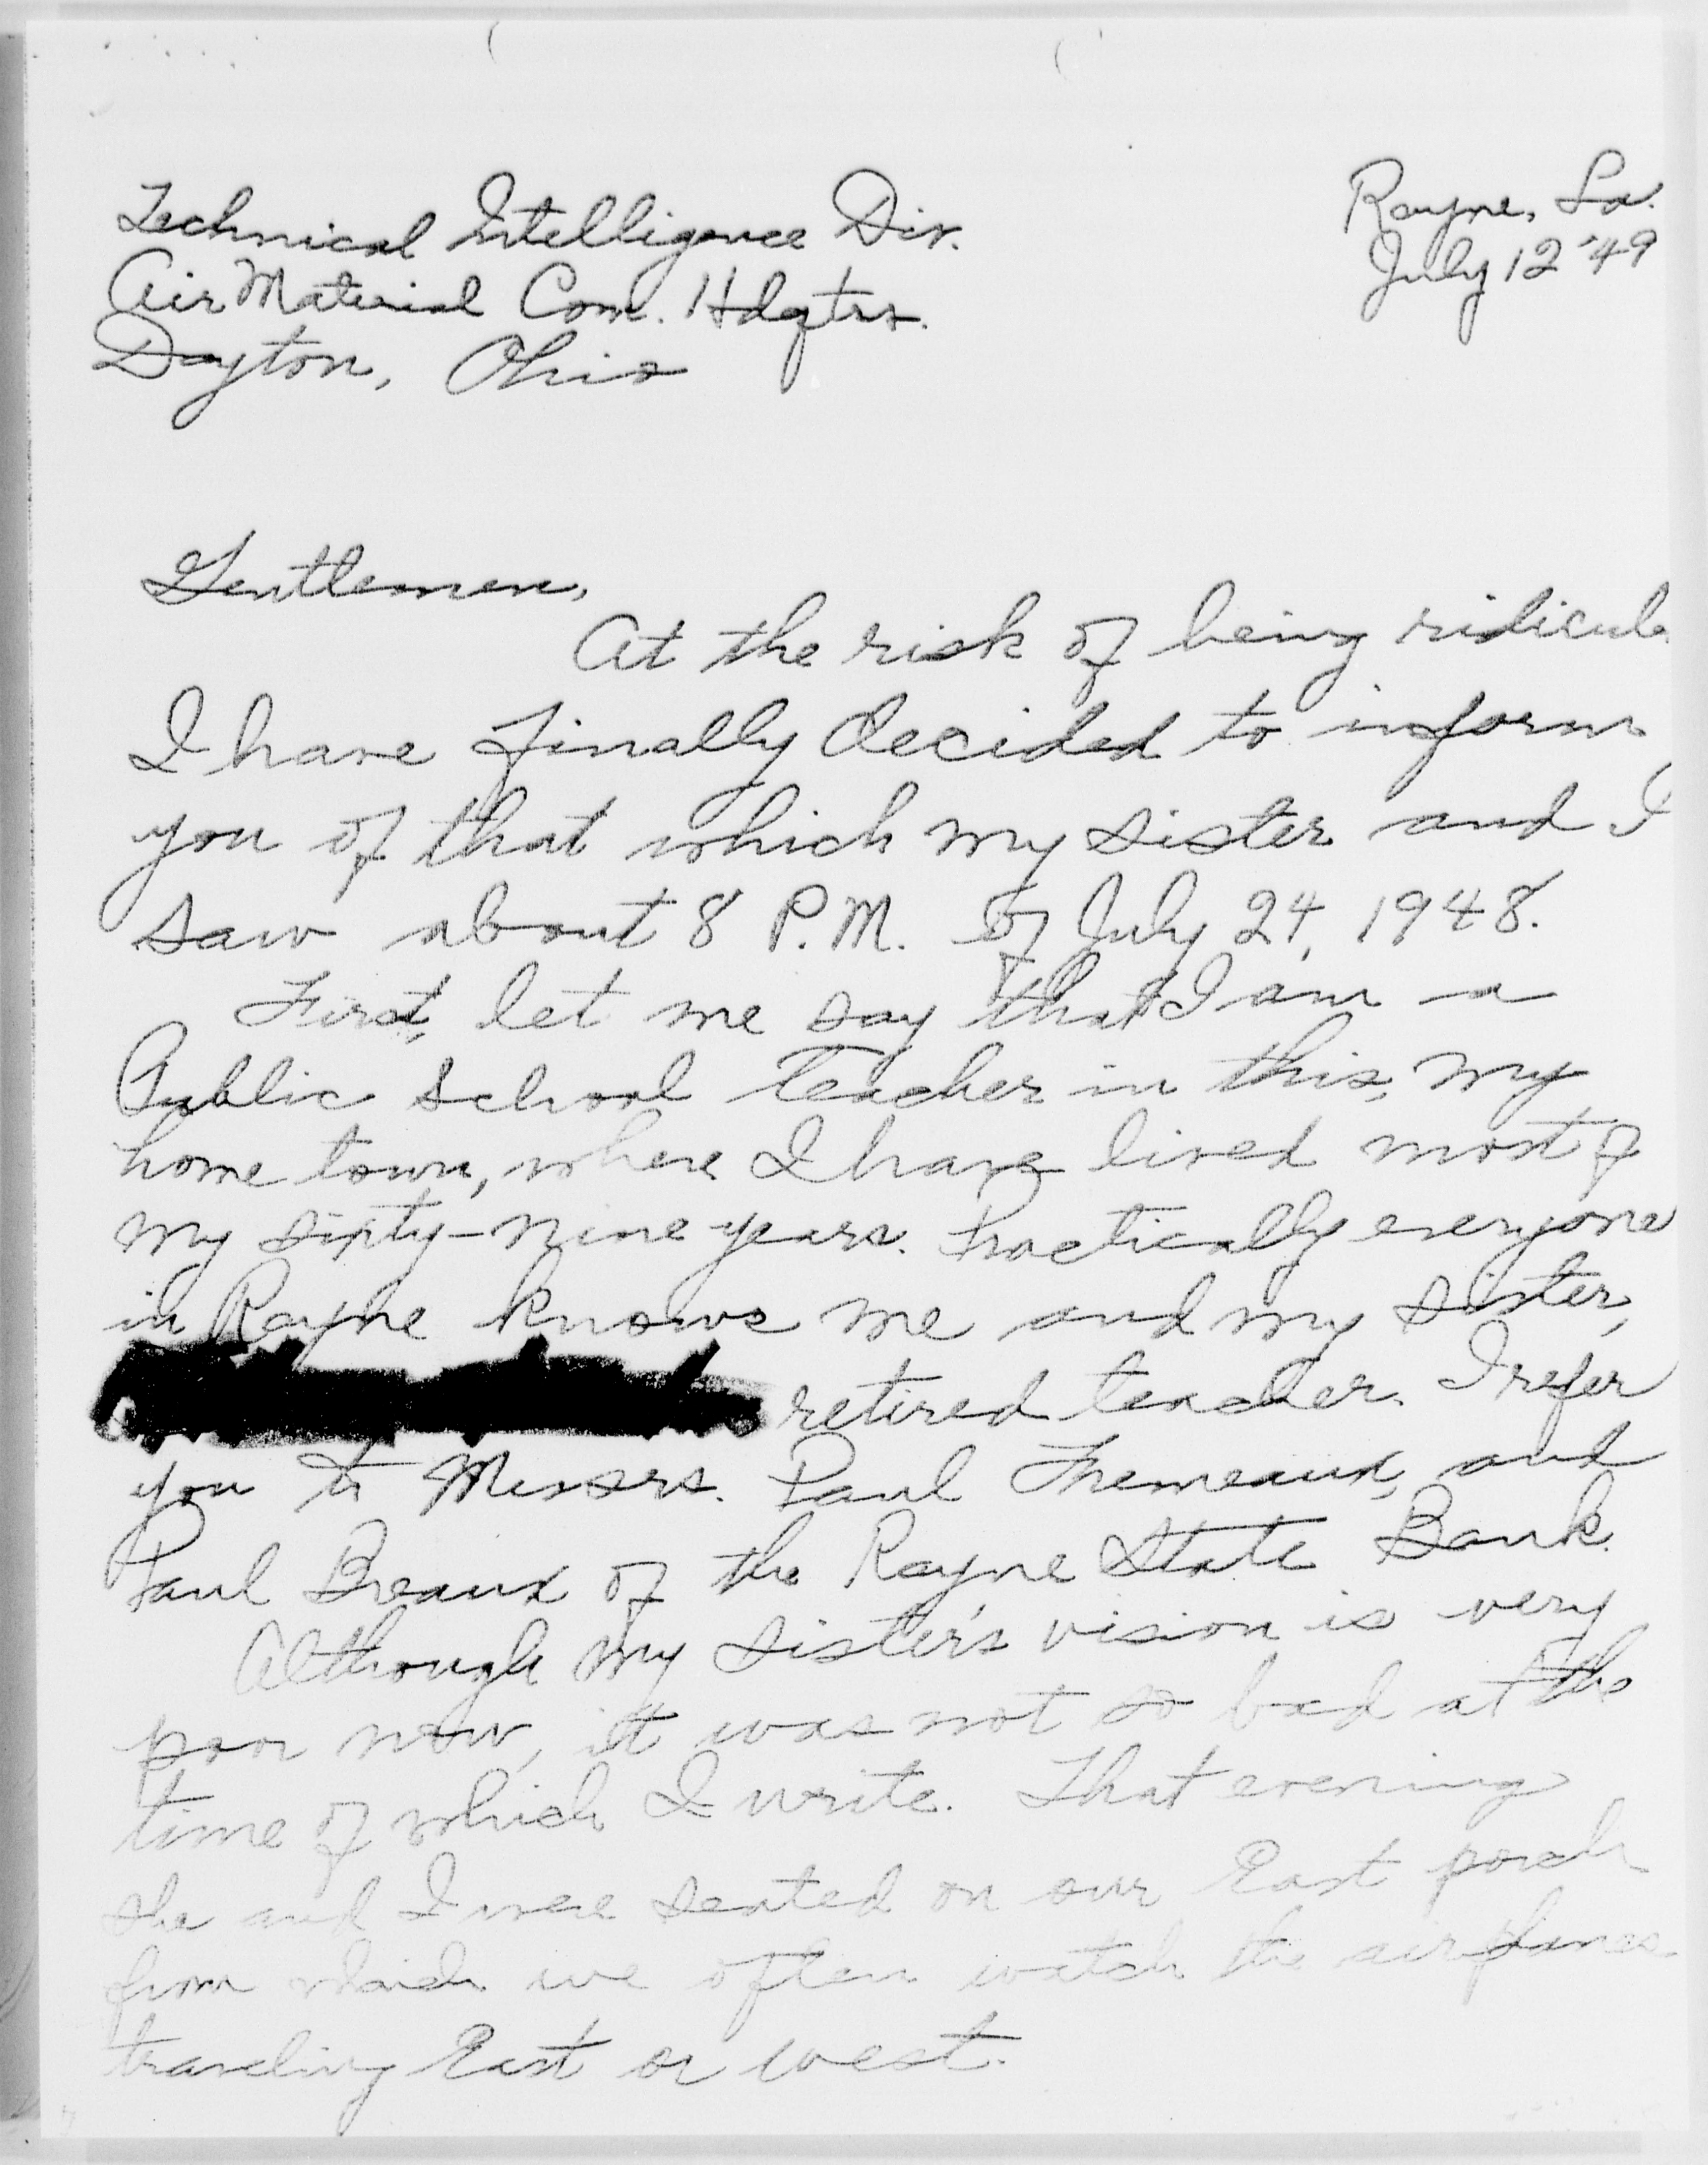 Rayne, La.
July 12 '49
Technical Intelligence Div.
Air Material Com. Hdqtrs.
Dayton, Ohio
Gentlemen,
At the risk of being ridicule
I have finally decided to inform
you of that which my sister and I
saw about 8 P.M. of July 24, 1948.
First, let me say that I am a
Public School Teacher in this, my
home town, where I have lived most of
my sixty-nine years. Practically everyone
in Rayne knows me and my sister,
retired teacher. I refer
you to Messrs. Paul Fremeaux, and
Paul Breaux of the Rayne State Bank.
Although my sister's vision is very
poor now, it was not so bad at the
time of which I write. That evening
she and I were seated on our East porch
from which we often watch the airplanes
traveling East or west.